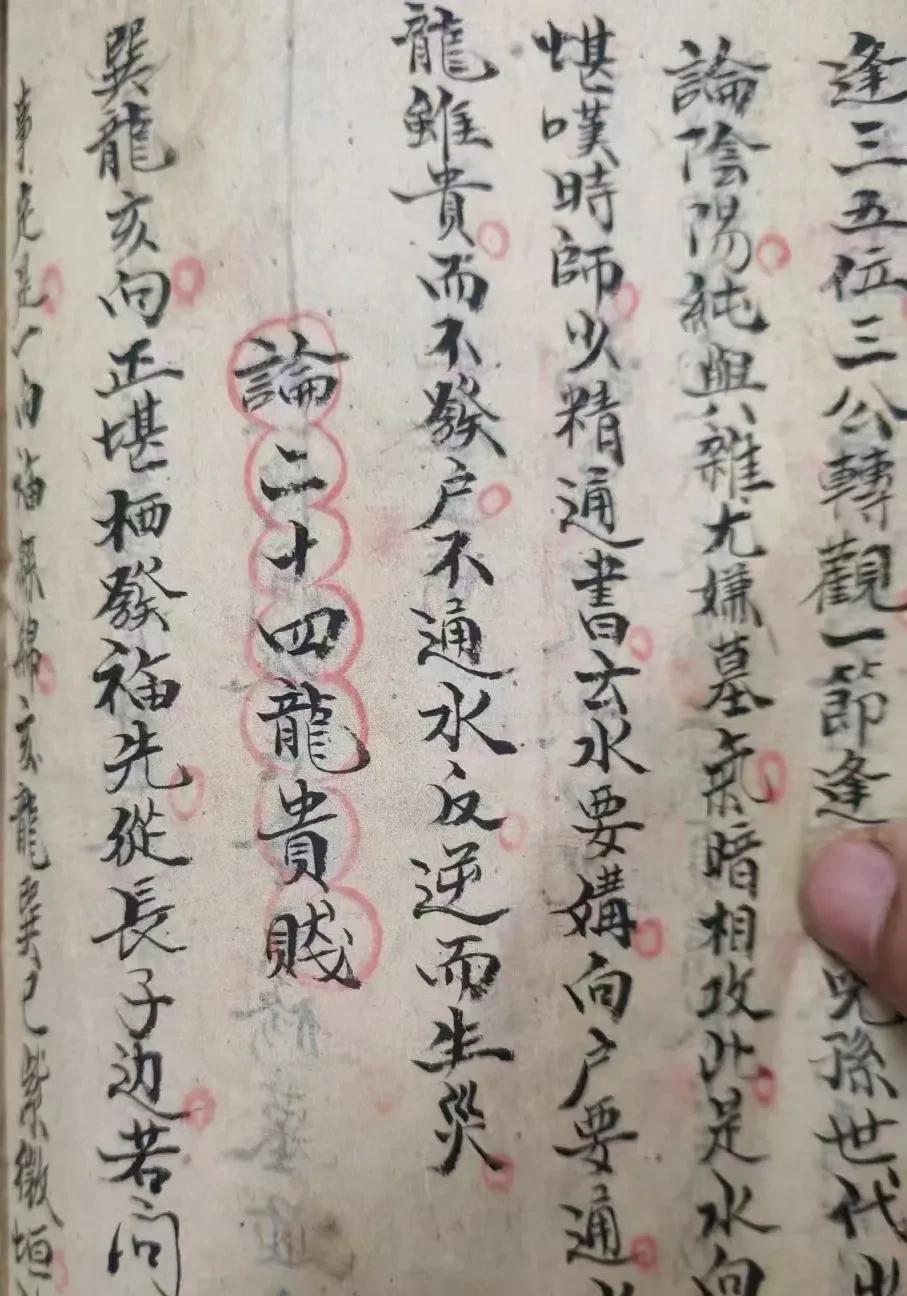 逢三五位三公轉觀一節逢兒孫世代出
論陰陽純與雜尤嫌墓氣暗相攻此是水向
堪嘆時師少精通書云水要媾向户要通
龍雖貴而不發户不通水反逆而生災
論二十四龍貴賤
巽龍亥向正堪栖發福先從長子边若问
向福綿綿亥龍巽巳紫微垣